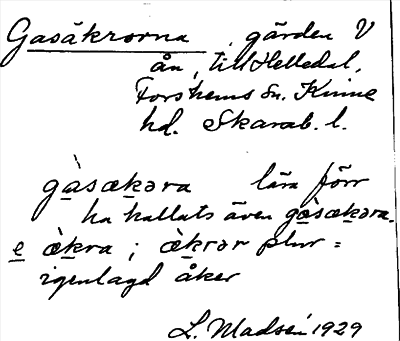 Gasåkrorna, gärden V
ån, till Helledal,
Forshems sn. Kinne
hd. Skarab. l.
gàsæk̲əra lära förr
ha kallats även gàsæk̲əra.
e̲ æ̀k̲ra; æ̀k̲rər plur =
igenlagd åker
L. Madsén 1929